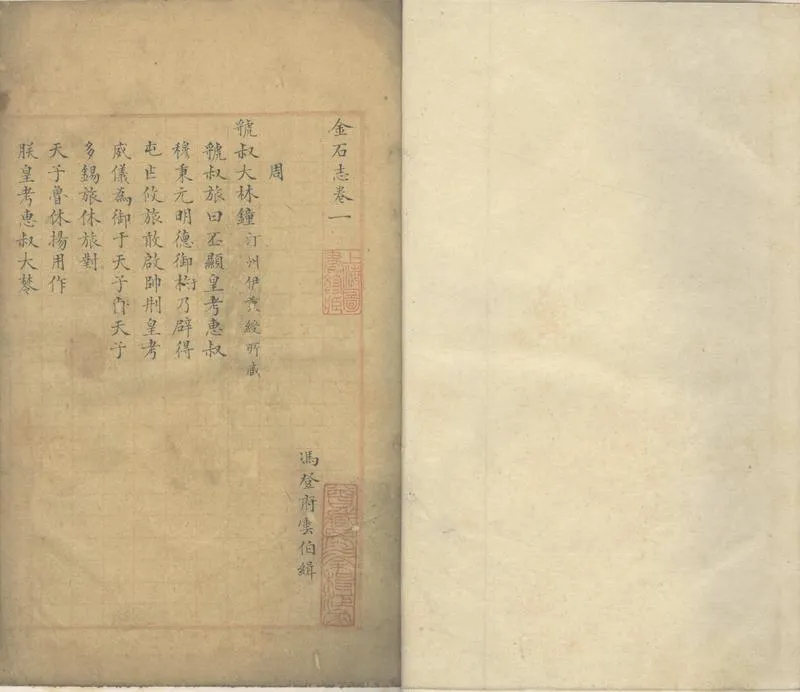 金石志卷一
上海圖書館藏
馮登府雲伯緝
周
虢叔大林鐘 汀州伊秉綬所藏
虢叔旅曰丕顯皇考惠叔
穆秉元明德御於乃辟得
屯亡攸旅敢啟帥刑皇考
威儀為御于天子 天子
多錫旅休旅對
天子魯休揚用作
朕皇考惠叔大棽